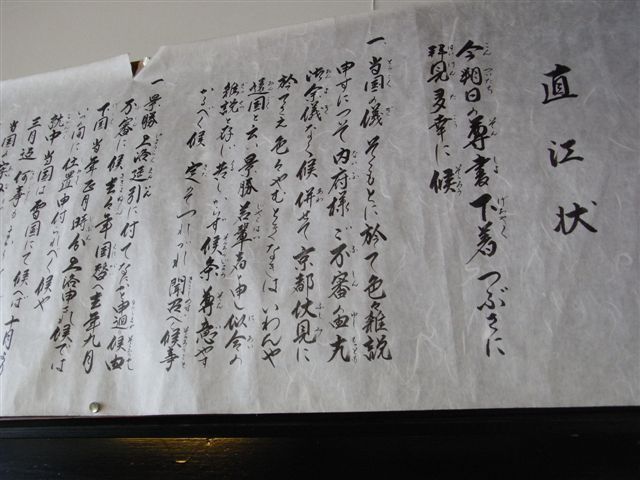 直江状
今朔日の尊書下着つぶさに
拝見多幸に候
一、当国の儀そくもとに於て色々雑説
申すにつき内府様ご不審由尤
御余儀なく候併せて京都伏見に
於てさえ色々やむときなきはいわんや
遠国と云い景勝若輩者と申し似合の
雑説と存じ苦しからず候条尊意やす
かるべく候定てつれづれ聞召べく候事
一景勝上洛延引に付てなど申廻候由
不審に候去々年国替へ去年九月
下国当年正月時分上洛申され候ては
いつの間に仕置申付けらるべく候や
就中当国は雪国にて候へば十月より
三月迄何事も
当国の